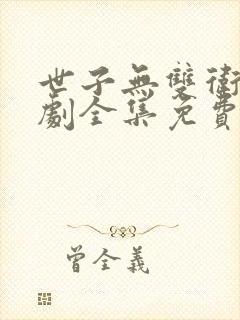 世子無雙衛
劇全集免費
曾全義